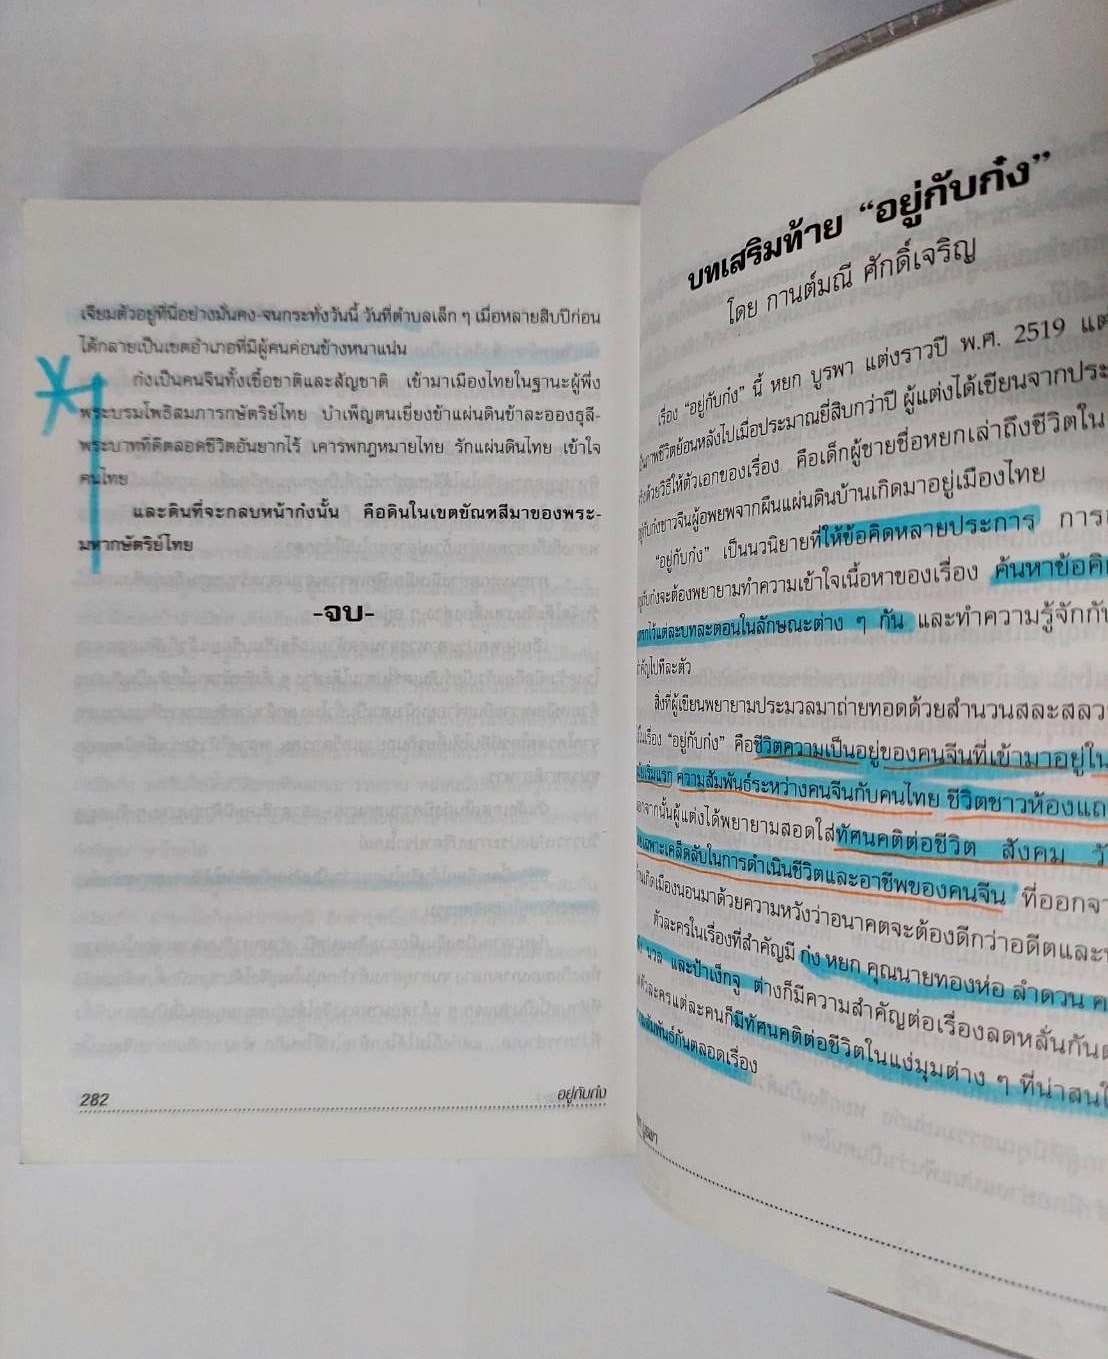 เจียมตัวอยู่ที่นี่อย่างมั่นคง-จนกระทั่งวันนี้ วันที่ตำบลเล็ก ๆ เมื่อหลายสิบปีก่อน
ได้กลายเป็นเขตอำเภอที่มีผู้คนค่อนข้างหนาแน่น
ก๋งเป็นคนจีนทั้งเชื้อชาติและสัญชาติ เข้ามาเมืองไทยในฐานะผู้พึ่ง
พระบรมโพธิสมภารกษัตริย์ไทย บำเพ็ญตนเยี่ยงข้าแผ่นดินข้าละอองธุลี-
พระบาทที่ดีตลอดชีวิตอันยากไร้ เคารพกฎหมายไทย รักแผ่นดินไทย เข้าใจ
คนไทย
และดินที่จะกลบหน้าก๋งนั้น คือดินในเขตขัณฑสีมาของพระ-
มหากษัตริย์ไทย
-จบ-
282
อยู่กับก๋ง
บทเสริมท้าย “อยู่กับก๋ง”
โดย กานต์มณี ศักดิ์เจริญ
เรื่อง “อยู่กับก๋ง” นี้ หยก บูรพา แต่งราวปี พ.ศ. 2519 แต่
ภาพชีวิตย้อนหลังไปเมื่อประมาณยี่สิบกว่าปี ผู้แต่งได้เขียนจากประ
ด้วยวิธีให้ตัวเอกของเรื่อง คือเด็กผู้ชายชื่อหยกเล่าถึงชีวิตใน
กับก๋งชาวจีนผู้อพยพจากผืนแผ่นดินบ้านเกิดมาอยู่เมืองไทย
“อยู่กับก๋ง” เป็นนวนิยายที่ให้ข้อคิดหลายประการ การ
จะต้องพยายามทำความเข้าใจเนื้อหาของเรื่อง ค้นหาข้อคิ
แทรกไว้แต่ละบทละตอนในลักษณะต่าง ๆ กัน และทำความรู้จักกั
คัญไปทีละตัว
สิ่งที่ผู้เขียนพยายามประมวลมาถ่ายทอดด้วยสำนวนสละสลว
ในเรื่อง “อยู่กับก๋ง” คือชีวิตความเป็นอยู่ของคนจีนที่เข้ามาอยู่ใน
เริ่มแรก ความสัมพันธ์ระหว่างคนจีนกับคนไทย ชีวิตชาวห้องแถ
จากนั้นผู้แต่งได้พยายามสอดใส่ทัศนคติต่อชีวิต สังคม วั
โดยเฉพาะเคล็ดลับในการดำเนินชีวิตและอาชีพของคนจีน ที่ออกจา
บ้านเกิดเมืองนอนมาด้วยความหวังว่าอนาคตจะต้องดีกว่าอดีตและ
ตัวละครในเรื่องที่สำคัญมี ก๋ง หยก คุณนายทองห่อ ลำดวน
นวล และป้าเง็กจู ต่างก็มีความสำคัญต่อเรื่องลดหลั่นกัน
ตัวละครแต่ละคนก็มีทัศนคติต่อชีวิตในแง่มุมต่าง ๆ ที่น่าสนใ
สัมพันธ์กันตลอดเรื่อง
บูรพา